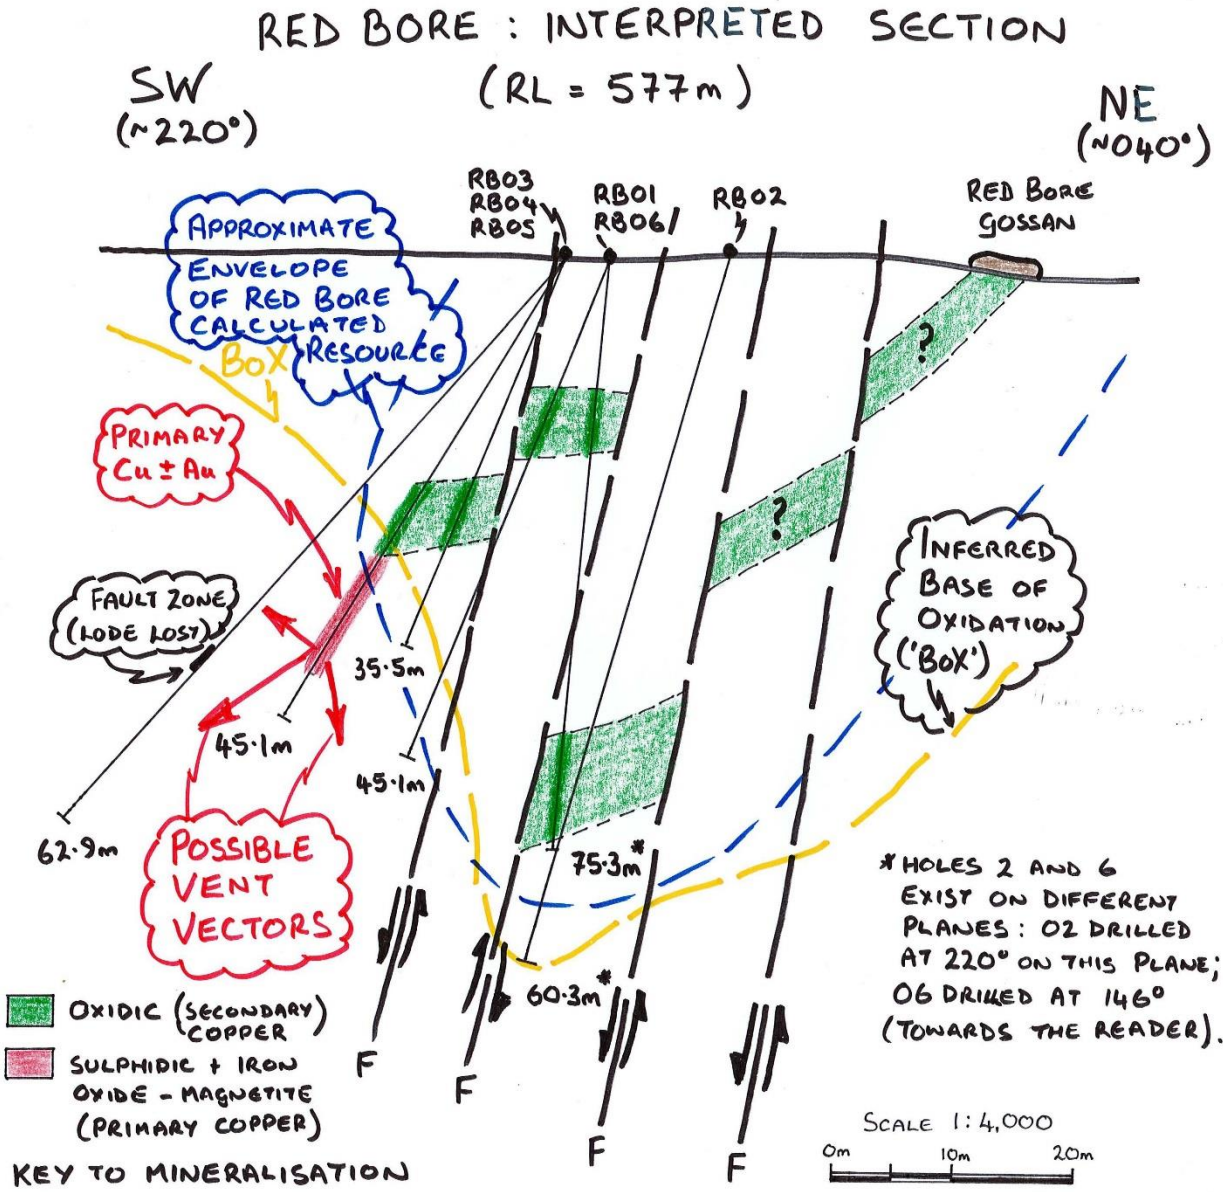 RED BORE : INTERPRETED SECTION
(RL = 577m)
SW
(~220°)
NE
(~040°)
RB03
RB04
RB05
RB01
RB06
RB02
RED BORE
GOSSAN
APPROXIMATE
ENVELOPE
OF RED BORE
CALCULATED
RESOURCE
BOX
PRIMARY
Cu ± Au
?
?
FAULT ZONE
(LODE LOST)
INFERRED
BASE OF
OXIDATION
('BOX')
35.5m
45.1m
45.1m
62.9m
75.3m*
60.3m*
POSSIBLE
VENT
VECTORS
* HOLES 2 AND 6
EXIST ON DIFFERENT
PLANES: 02 DRILLED
AT 220° ON THIS PLANE;
06 DRILLED AT 146°
(TOWARDS THE READER).
F
F
F
F
OXIDIC (SECONDARY)
COPPER
SULPHIDIC + IRON
OXIDE - MAGNETITE
(PRIMARY COPPER)
KEY TO MINERALISATION
SCALE 1:4,000
0m 10m 20m